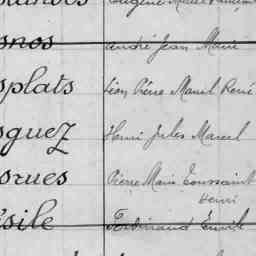 snos André Jean Marie
splats Léon Pierre Marcel René
sguez Henri Jules Marcel
srues Pierre Marie Toussaint
Henri
sile Ferdinand Emile